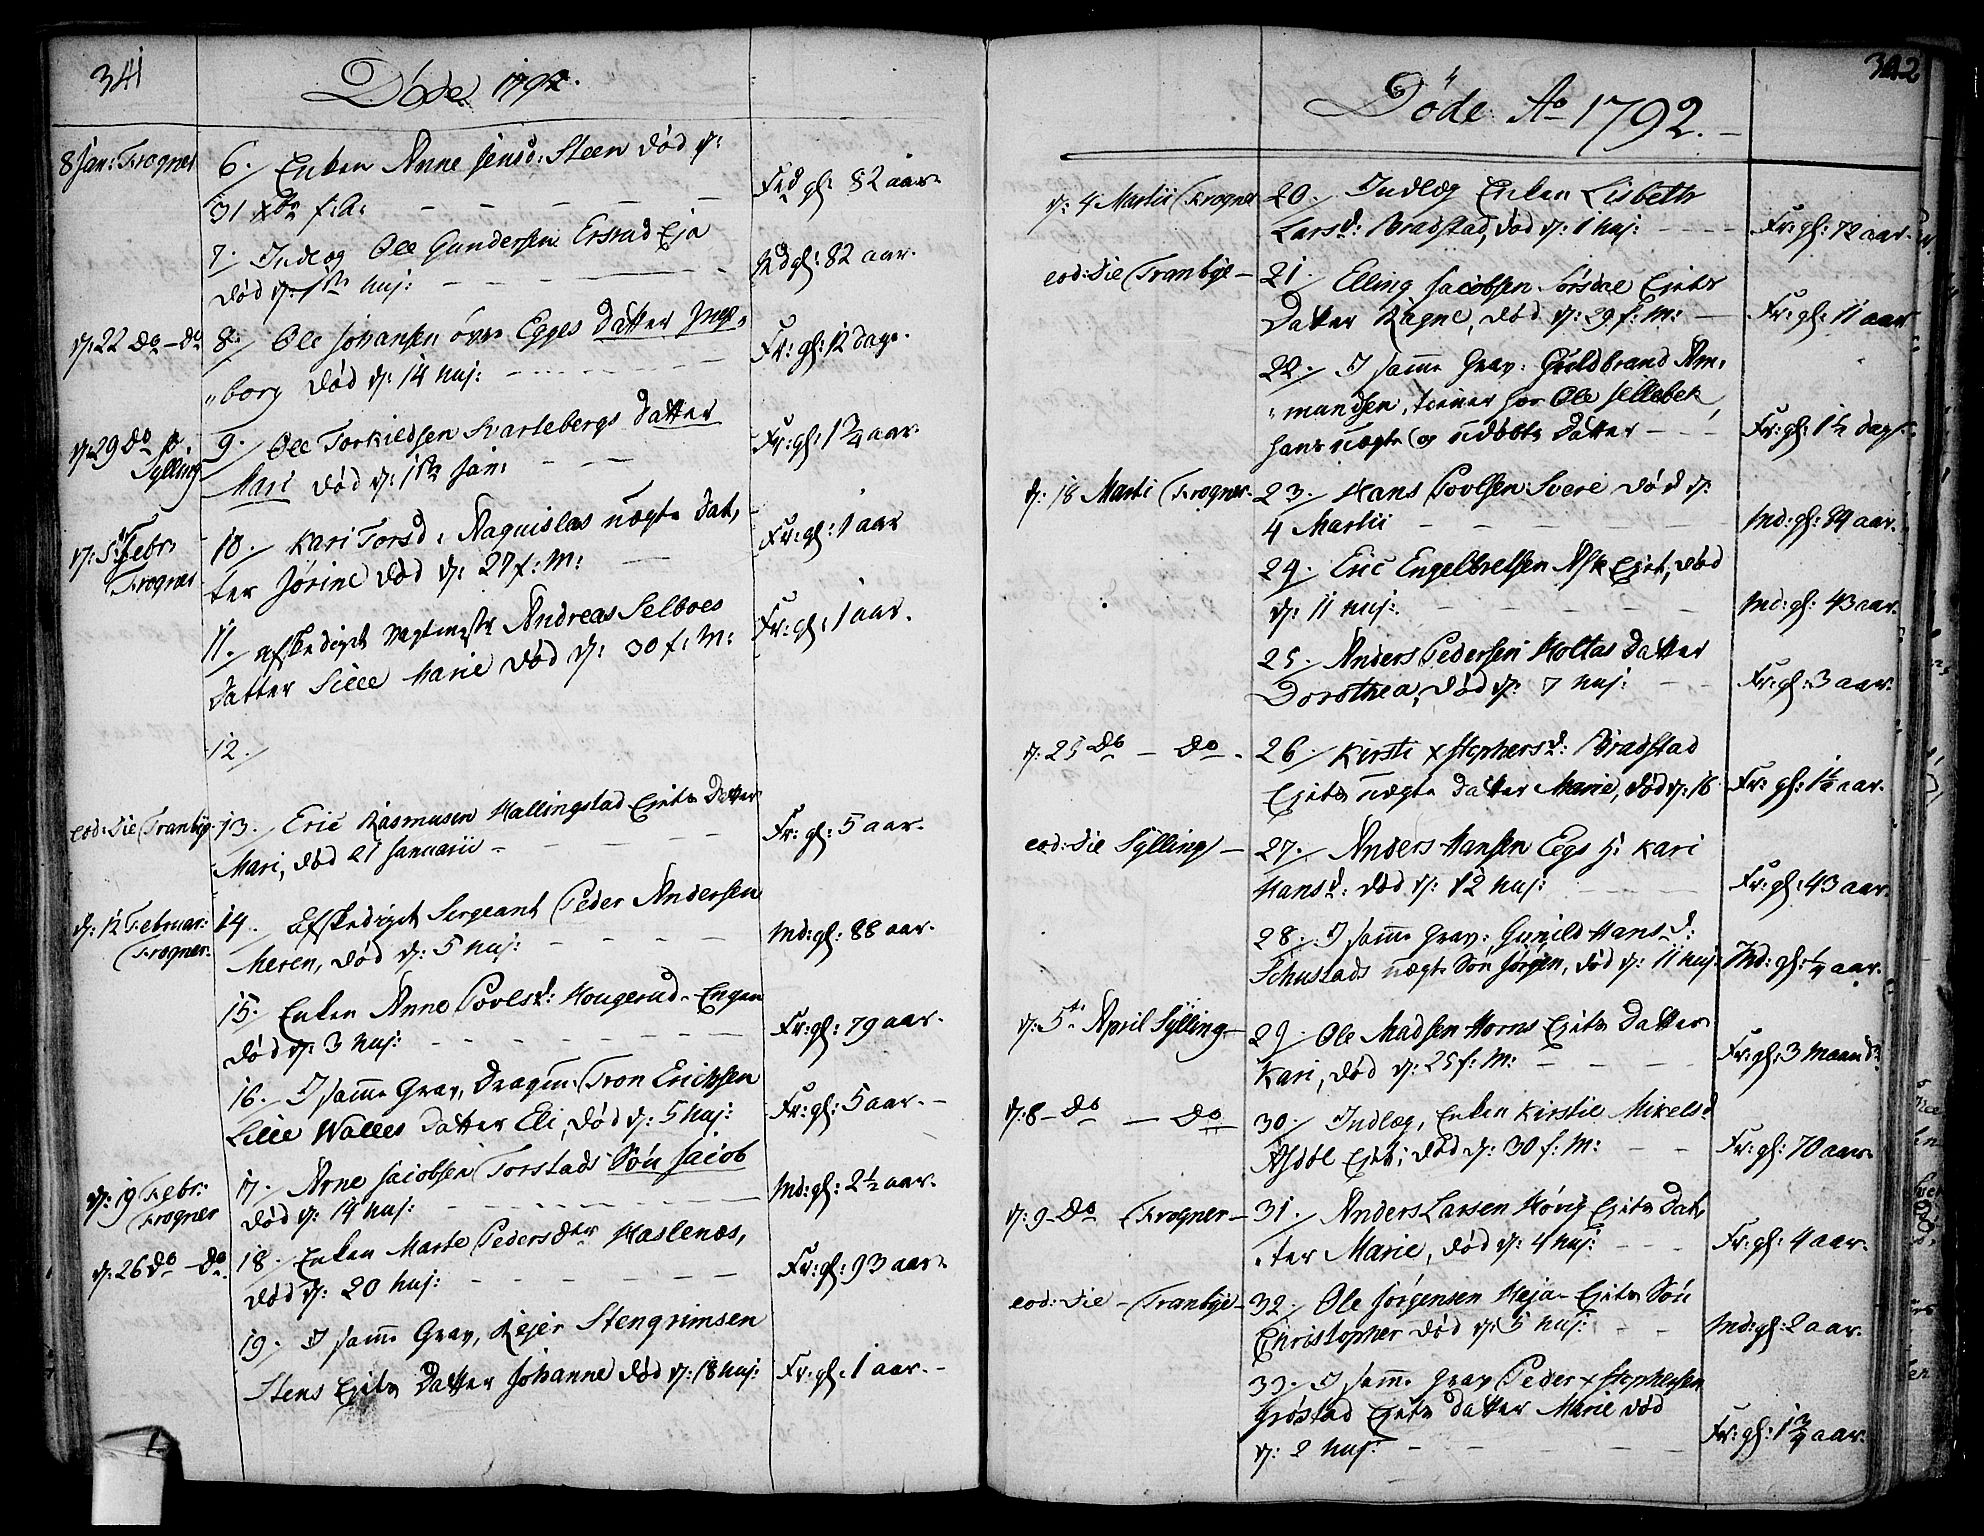 341
Døde 1792.
8 Jan: Frogner
6. Enken Anne Jensd: Steen død d:
31 xbr f: A:
Fr: gl: 82 aar.
7. Indlæg Ole Gundersen Ersrud Eja
død d: 1ste huj:
Md gl: 82 aar.
d: 22 do - do
8. Ole Johansen övre Egges Datter Inge-
borg død d: 14 huj:
Fr: gl: 12 dage.
d: 29 do p
Sylling
9. Ole Torkildsen Svartebergs Datter
Mari død d: 1ste Jan:
Fr: gl: 1 3/4 aar.
d: 5te Febr:
Frogner
10. Kari Torsd: Naguislas uægte Dat,
ter Jørine død d: 27 f: M:
Fr: gl: 1 aar
11. afskediget Vagtmestr Andreas Selboes
Datter Sille Marie død d: 30 f: M:
Fr: gl: 1 aar.
12.
eod: die Tranbye
13. Eric Rasmusen Hallingstad Ejets Datter
Mari, død 21 Januarii
Fr: gl: 5 aar.
d: 12 Februar:
Frogner.
14. Afskediget Sergeant Peder Andersen
Meren, død d: 5 huj:
Md: gl: 88 aar.
15. Enken Anne Povelsd: Hougerud-Engen
død d: 3 huj:
Fr: gl: 79 aar.
16. I samme Grav, Dragun Tron Erichsen
Lille Walles Datter Eli, død d: 5 huj:
Fr: gl: 5 aar.
d: 19 Febr:
Frogner
17. Arne Jacobsen Torstads Søn Jacob
død d: 14 huj:
Md: gl: 2 1/2 aar.
d: 26 do - do
18. Enken Marte Pedersdtr Haslenæs,
død d: 20 huj:
Fr: gl: 93 aar.
19. I samme Grav, Rejer Stengrimsen
Stens Ejets Datter Johanne død d: 18 huj:
Fr: gl: 1 aar.
342
Døde Ao 1792.
d: 4 Martii Frogner
20. Indlæg Enken Lisbeth
Larsd: Bradstad, død d: 1 huj:
Fr: gl: 72 aar.
eod: die Tranbye
21. Elling Jacobsen Sørsdal Ejets
Datter Ragne, død d: 29 f: M:
Fr: gl: 11 aar
22. I samme Grav: Guldbrand Am-
mundsen, tiener hos Ole Jellebek,
hans uægte og udøbte Datter
Fr: gl: 1 1/2 dag
d: 18 Marti Frogner
23. Hans Povlsen Svere død d:
4 Martii
Md: gl: 84 aar.
24. Eric Engelbretsen Ask Ejet, død
d: 11 huj:
Md: gl: 43 aar.
25. Anders Pedersen Holtas Datter
Dorothea, død d: 7 huj:
Fr: gl: 3 aar.
d: 25 do - do.
26. Kirsti xstophersd: Bradstad
Ejets uægte Datter Marie, død d: 16
Fr: gl: 1 1/2 aar.
eod: die Sylling
27. Anders Hansen Eegs h: Kari
Hansd: død d: 12 huj:
Fr: gl: 43 aar.
28. I samme Grav: Gunild Hansd:
Schustads uægte Søn Jörgen, død d: 11 huj:
Md: gl: 1/4 aar.
d: 5te April Sylling
29. Ole Madsen Horns Ejets Datter
Kari, død d: 25 f: M:
Fr: gl: 3 maand:
d: 8 do - do
30. Indlæg, Enken Kirstie Mikelsd
Asdøl Ejet, død d: 30 f: M:
Fr: gl: 70 aar.
d: 9 do Frogner
31. Anders Larsen Høvig Ejets Dat-
ter Marie, død d: 4 huj:
Fr: gl: 4 aar.
eod: die - Tranbye
32. Ole Jørgensen Heja- Ejets Søn
Christopher død d: 5 huj:
Md: gl: 2 aar.
33. I samme Grav Peder xstophersen
Grøstad Ejets Datter Marie død
d: 2 huj:
Fr: gl: 1 3/4 aar.